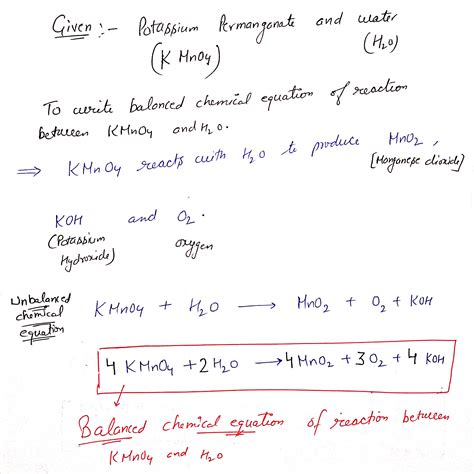 Given :- Potassium Permanganate and water
(KMnO4) (H2O)
To write balanced chemical equation of reaction
between KMnO4 and H2O.
⇒ KMnO4 reacts with H2O to produce MnO2,
[Manganese dioxide]
KOH and O2.
(Potassium Hydroxide) oxygen
Unbalanced chemical equation KMnO4 + H2O → MnO2 + O2 + KOH
4 KMnO4 + 2 H2O → 4 MnO2 + 3 O2 + 4 KOH
Balanced chemical equation of reaction between
KMnO4 and H2O